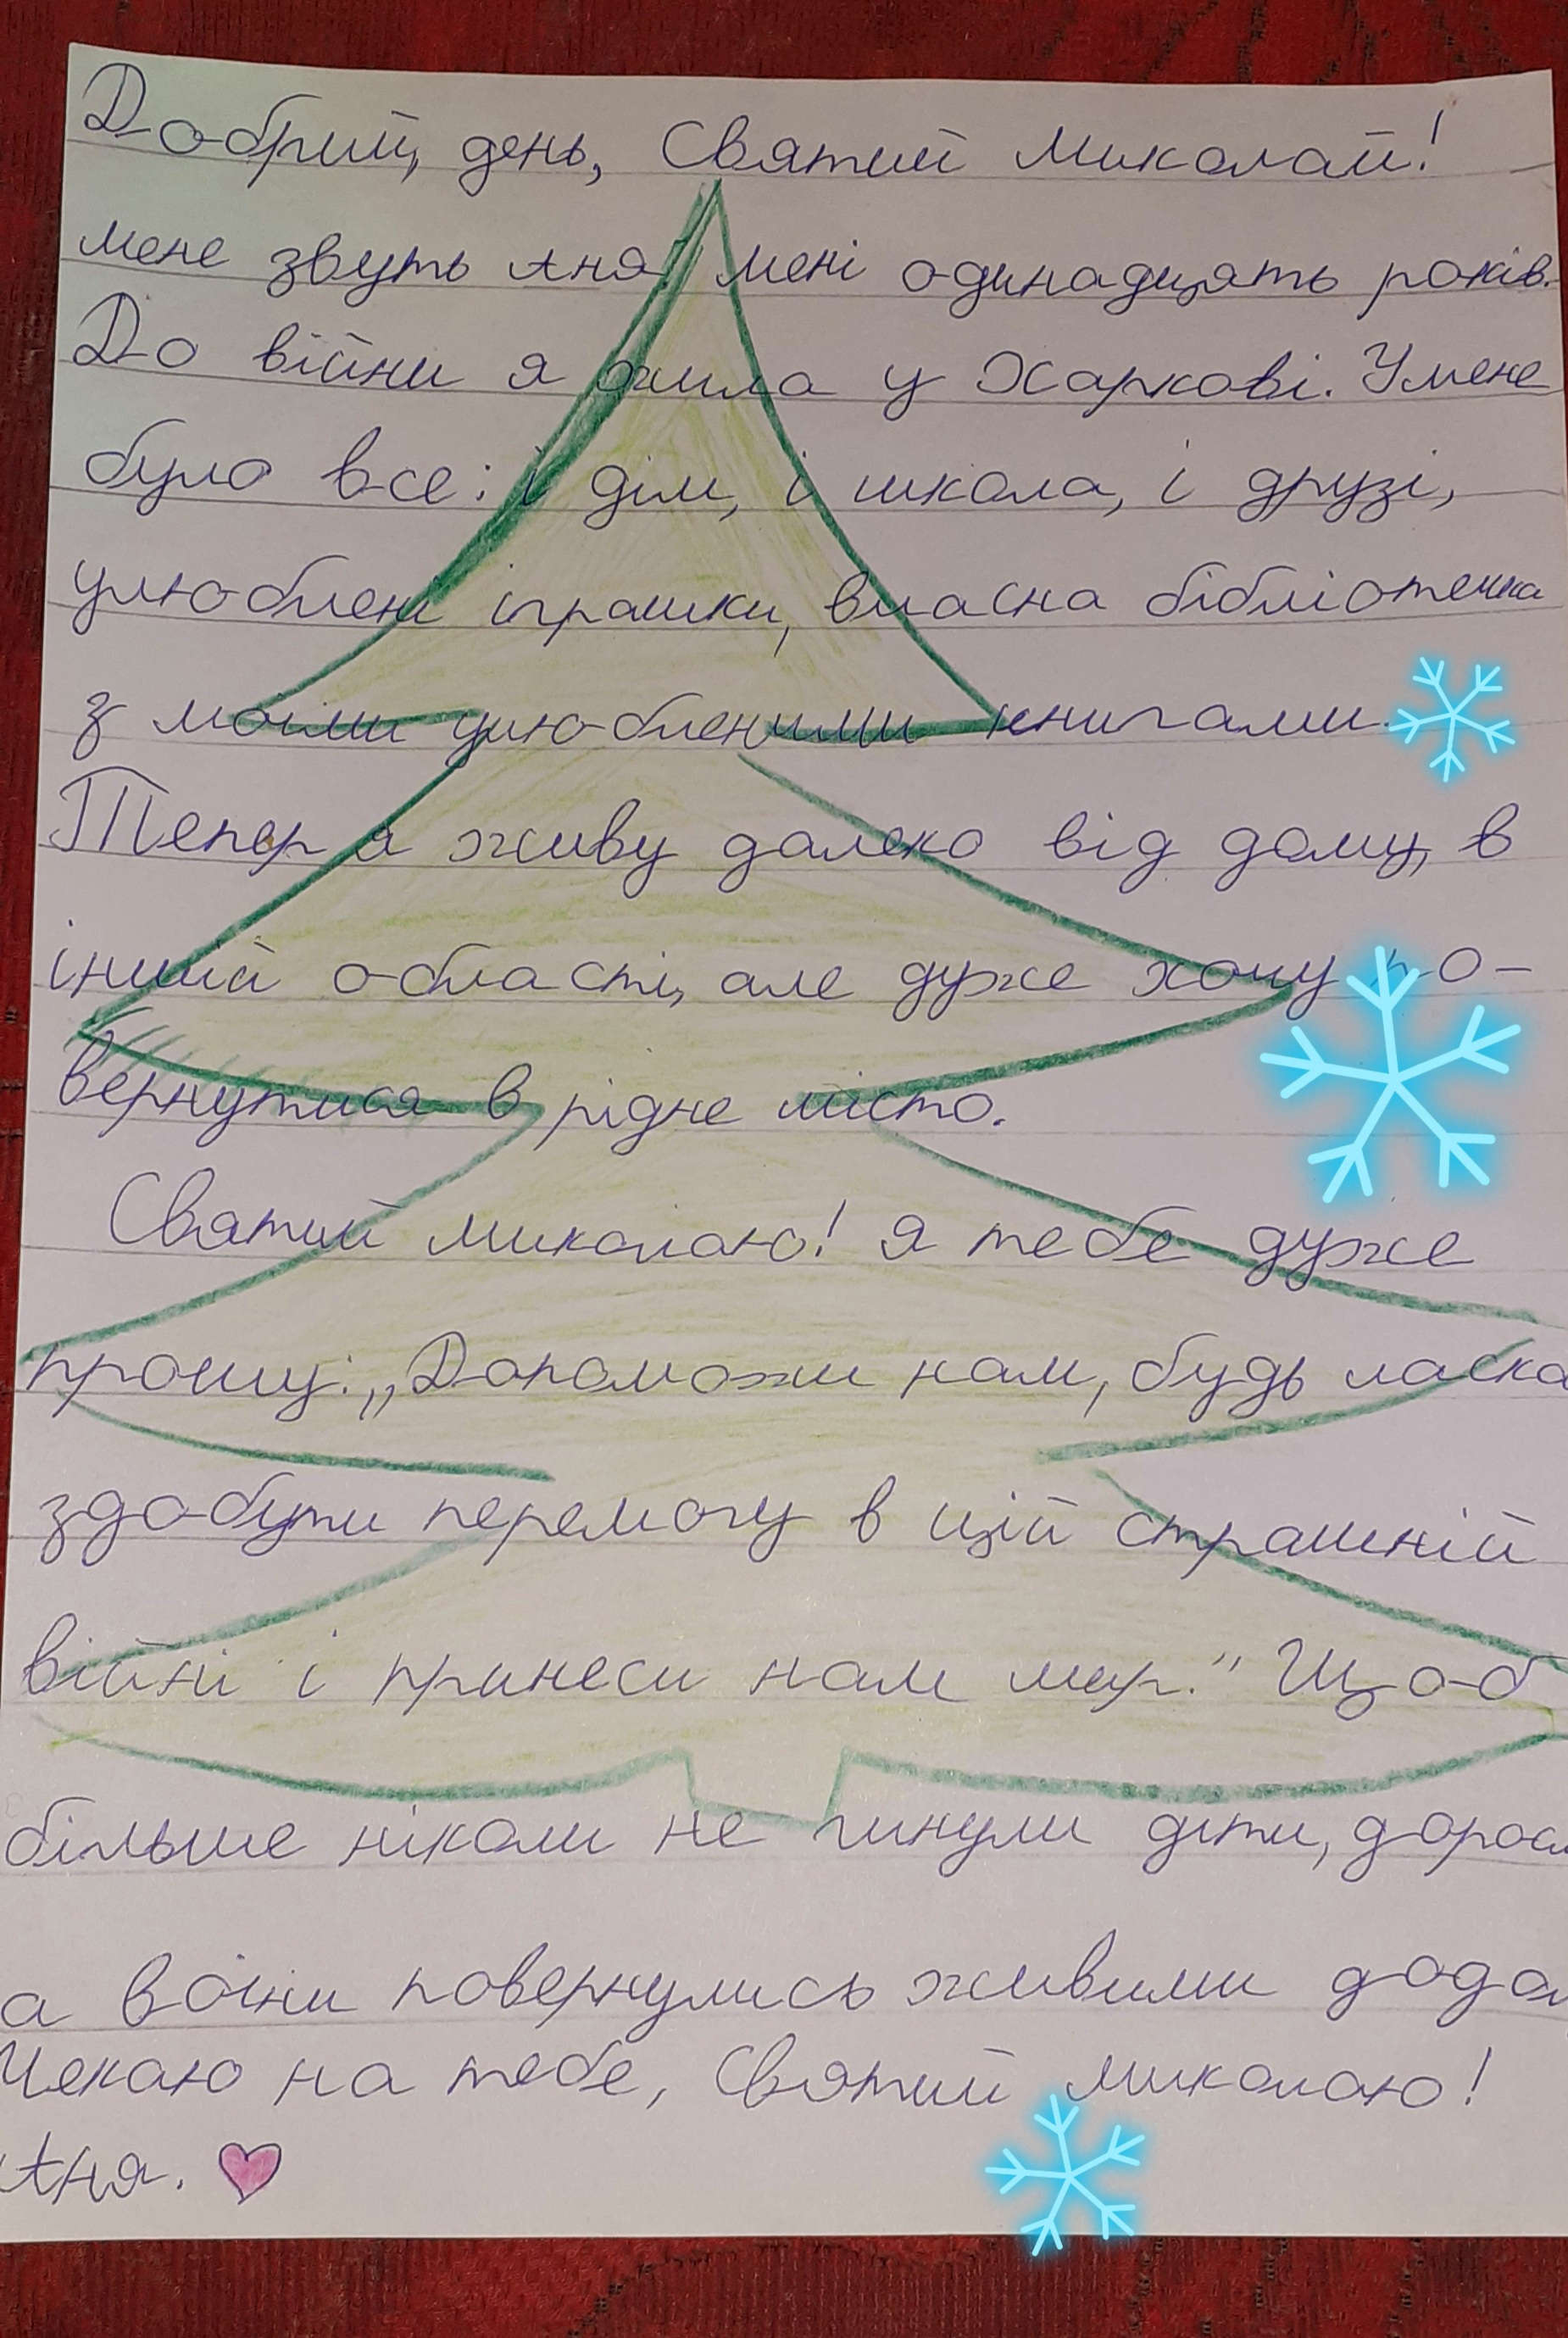 Добрий, день, Святий Миколай!
мене звуть Аня мені одинадцять років.
До війни я жила у Харкові. У мене
було все: і дім, і школа, і друзі,
улюблені іграшки, власна бібліотечка
з моїми улюбленими книгами.
Тепер я живу далеко від дому, в
іншій області, але дуже хочу по-
вернутися в рідне місто.
Святий миколаю! я тебе дуже
прошу: „Допоможи нам, будь ласка
здобути перемогу в цій страшній
війні і принеси нам мир." Щоб
більше ніколи не гинули діти, доросл
а воїни повернулись живими дода
Чекаю на тебе, Святий миколаю!
Аня.